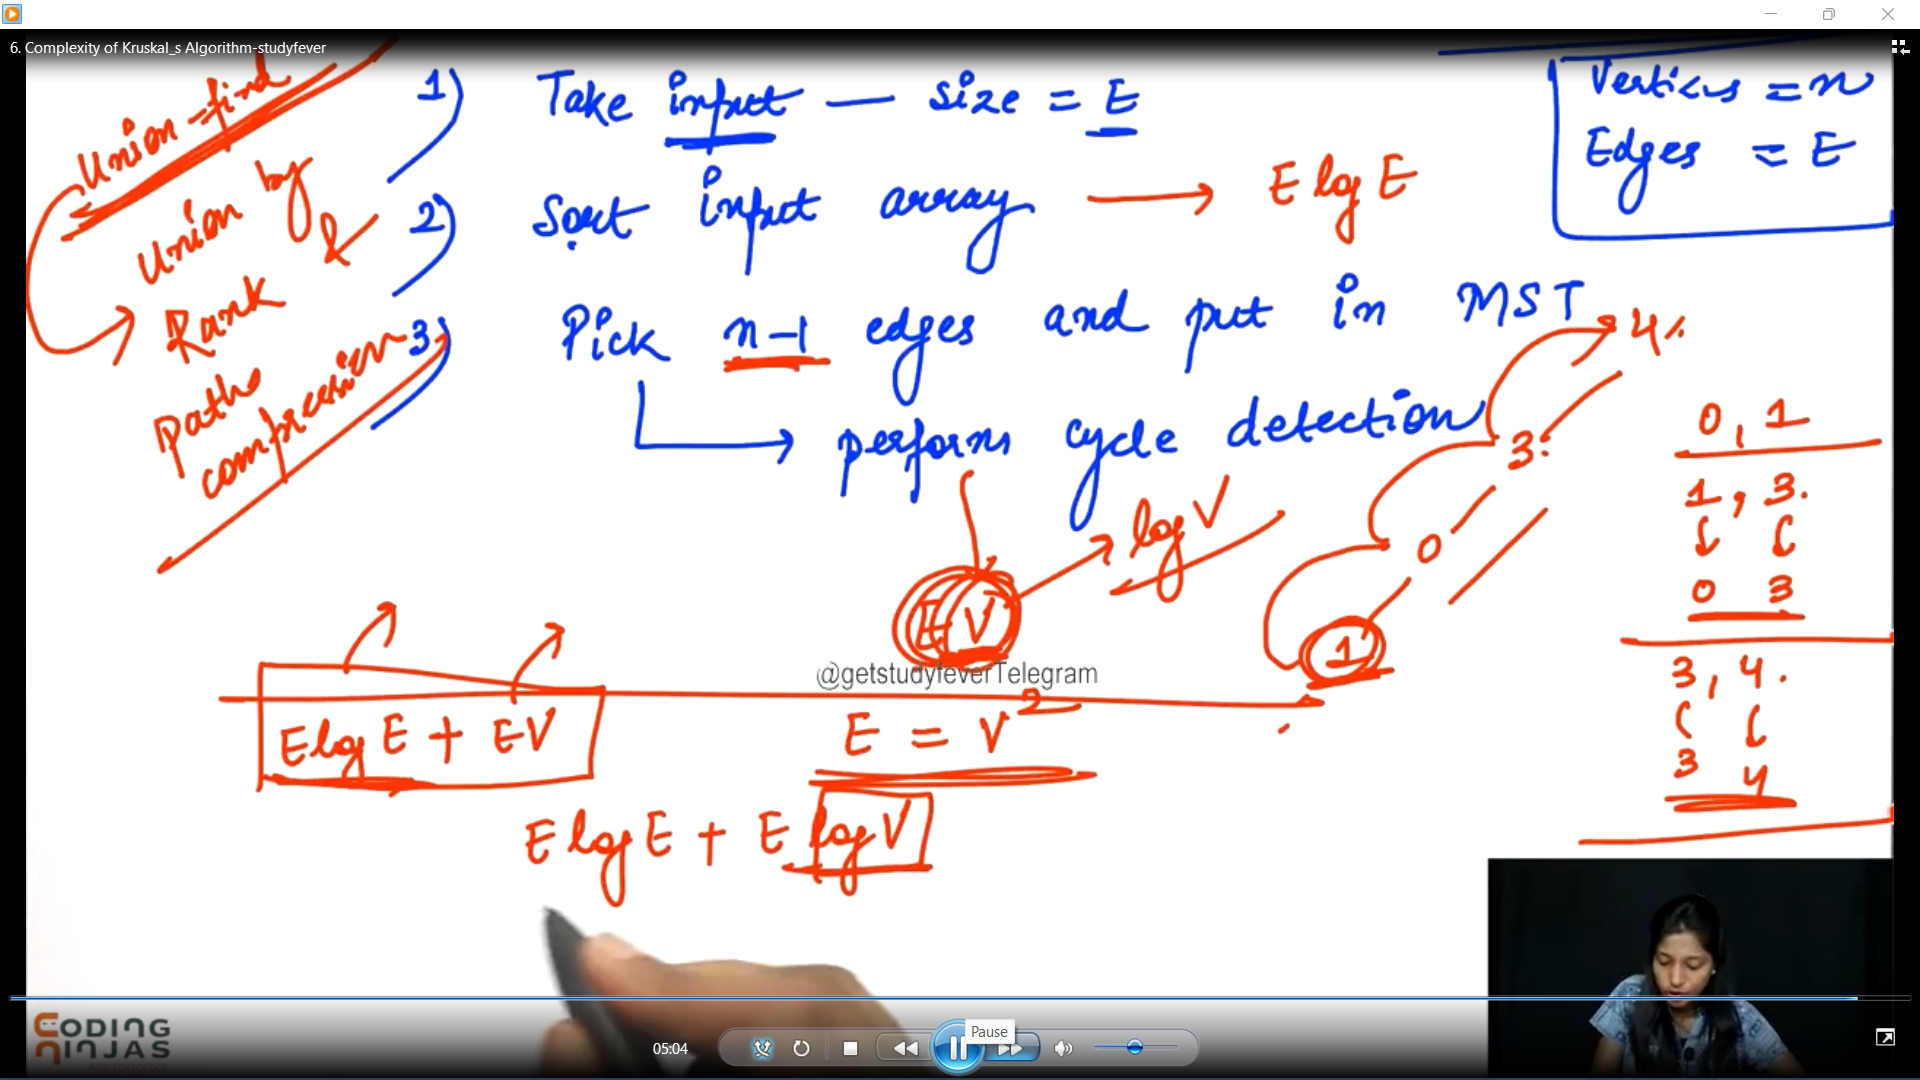 6. Complexity of Kruskal_s Algorithm-studyfever
Union-find
Union by
Rank &
Path
compression
1) Take input — size = E
2) Sort input array → E log E
3) Pick n-1 edges and put in MST
→ perform cycle detection
Vertices = n
Edges = E
E V → log V
1
0
3
4
0, 1
1, 3.
0 3
3, 4.
3 4
E log E + EV
E = V²
E log E + E log V
@getstudyfeverTelegram
CODING
NINJAS
05:04
Pause